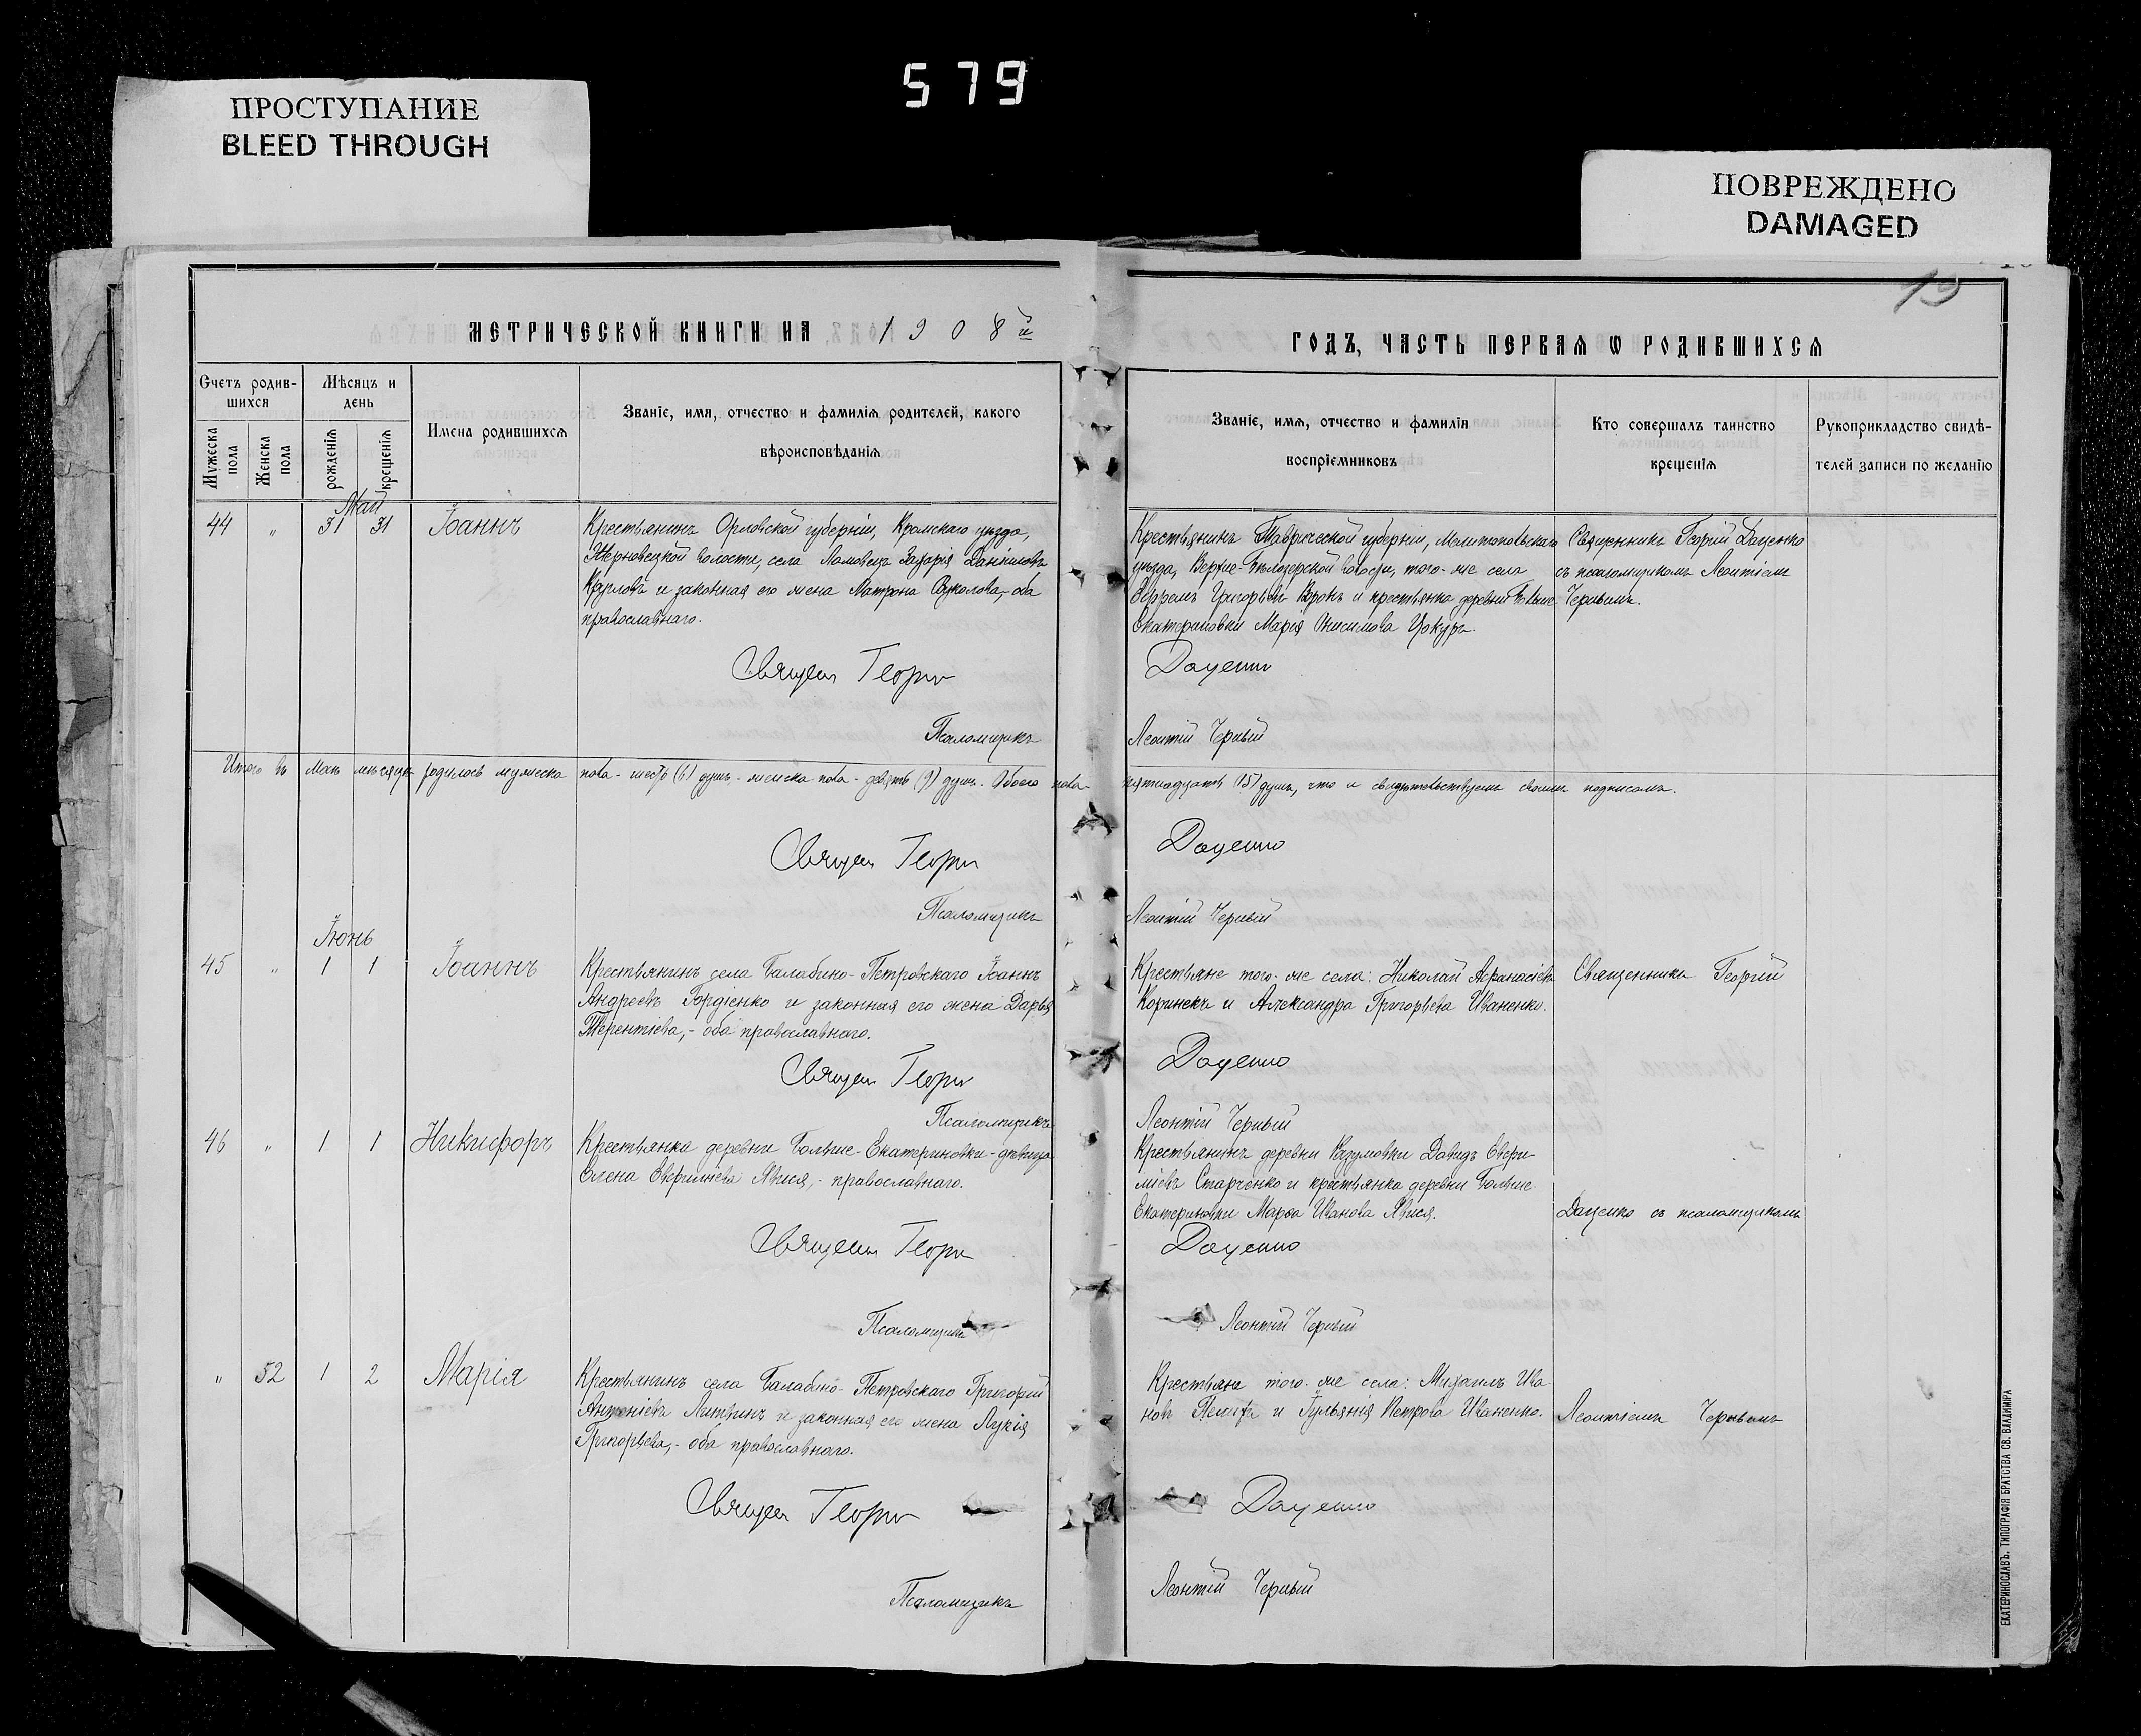 579
ПРОСТУПАНИЕ
BLEED THROUGH
ПОВРЕЖДЕНО
DAMAGED
19
МЕТРИЧЕСКОЙ КНИГИ НА 1908й
ГОДЪ, ЧАСТЬ ПЕРВАЯ Ѡ РОДИВШИХСЯ
Счетъ родив-
шихся
Мужеска пола
Женска пола
Мѣсяцъ и
день
рожденія
крещенія
Имена родившихся
Званіе, имя, отчество и фамилія родителей, какого
вѣроисповѣданія
Званіе, имя, отчество и фамилія
воспріемниковъ
Кто совершалъ таинство
крещенія
Рукоприкладство свидѣ-
телей записи по желанію
Май
44 " 31 31 Іоаннъ
Крестьянинъ Орловской губерніи, Кромскаго уѣзда,
волости, села Ломовецъ Захарія Даніиловъ
Кругловъ и законная его жена Матрона оба
православнаго.
Крестьянинъ Таврической губерніи, Мелитопольскаго
уѣзда, Верхне-Бѣлозерской волости, того-же села
Григорьевъ и крестьянка деревни
Екатериновки Марія Онисимова
Священникъ Георгій Даценко
съ псаломщикомъ Леонтіемъ
Чернымъ.
Священ Георги Даценко
Псаломщикъ Леонтій Черный
Итого въ Маѣ мѣсяцѣ родилось мужеска пола - шесть (6) душъ - женска пола - девять (9) душъ. Обоего пола - пятнадцать (15) душъ, что и свидѣтельствуемъ своими подписомъ.
Священ Георги Даценко
Псаломщикъ Леонтій Черный
Іюнь
45 " 1 1 Іоаннъ
Крестьянинъ села Балабино-Петровскаго Іоаннъ
Андреевъ Гордіенко и законная его жена Дарья
Терентіева,- оба православнаго.
Крестьяне того-же села: Николай Аѳанасіевъ
Коринекъ и Александра Григорьева Иваненко.
Священникъ Георгій
Священ Георги Даценко
Псаломщикъ Леонтій Черный
46 " 1 1 Никифоръ
Крестьянка деревни Больше-Екатериновки-дѣвица
Елена Евфиміева Явися,- православнаго.
Крестьянинъ деревни Разумовки Давидъ Евфи-
міевъ Старченко и крестьянка деревни Больше-
Екатериновки Марѳа Иванова Явися.
Даценко съ псаломщикомъ
Священ Георги Даценко
Псаломщикъ Леонтій Черный
" 52 1 2 Марія
Крестьянинъ села Балабино-Петровскаго Григорій
Антоніевъ Литвинъ и законная его жена Лукія
Григорьева,- оба православнаго.
Крестьяне того-же села: Михаилъ Ива-
новъ и Іульянія Петрова Иваненко.
Леонтіемъ Чернымъ
Священ Георги Даценко
Псаломщикъ Леонтій Черный
ЕКАТЕРИНОСЛАВЪ. ТИПОГРАФІЯ БРАТСТВА СВ. ВЛАДИМІРА